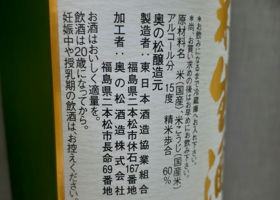 ＊お飲みになるまで冷蔵庫へお入れ下さい。
＊尚、お買い求めの後はお早めにお飲み下さい。
原材料名　米(国産)　米こうじ(国産米)
アルコール分　15度　精米歩合　60%
奥の松醸造元
製造者：東日本酒造協業組合
福島県二本松市休石167番地
加工者：奥の松酒造株式会社
福島県二本松市長命69番地
お酒はおいしく適量を。
飲酒は20歳になってから。
妊娠中や授乳期の飲酒は、お控えください。